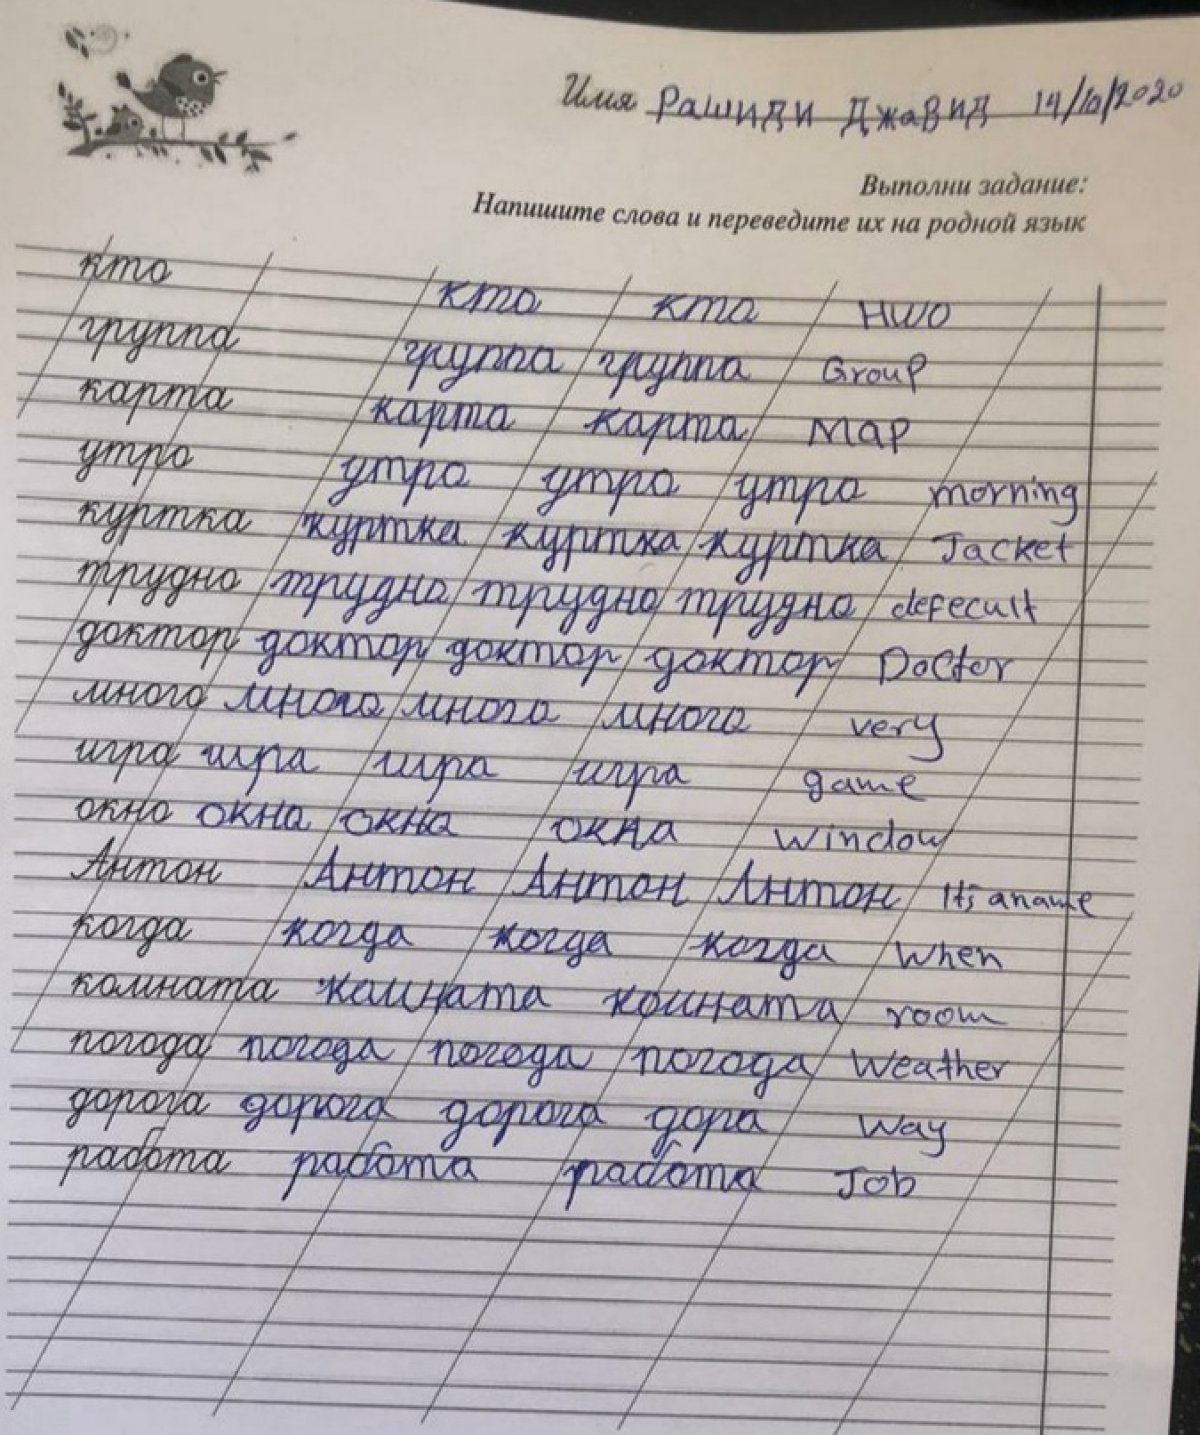 Имя Рашиди Джавид 14/10/2020
Выполни задание:
Напишите слова и переведите их на родной язык
кто кто кто HWO
группа группа группа Group
карта карта карта Map
утро утро утро утро morning
куртка куртка куртка куртка Jacket
трудно трудно трудно трудно defecult
доктор доктор доктор доктор Doctor
много много много много very
игра игра игра игра game
окно окна окна окна window
Антон Антон Антон Антон Its a name
когда когда когда когда when
комната комната комната room
погода погода погода погода Weather
дорога дорога дорога дора way
работа работа работа Job